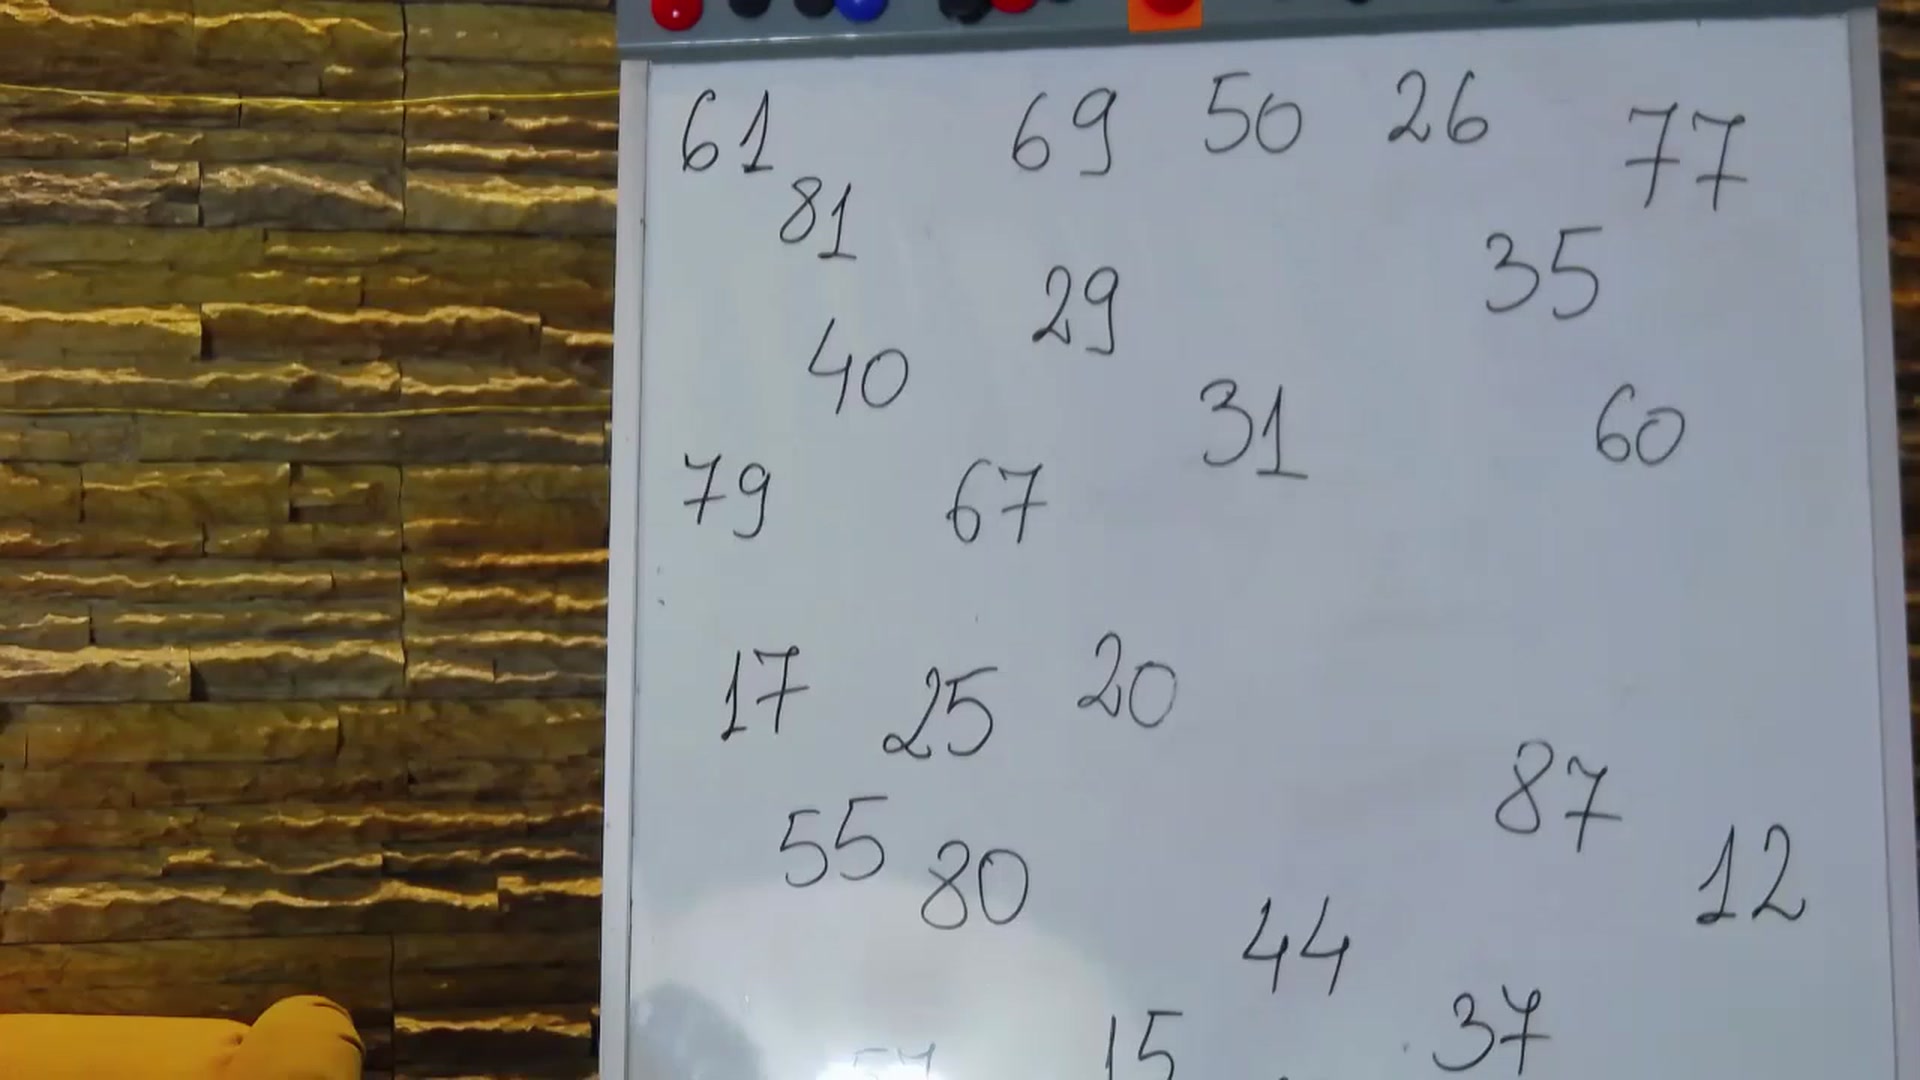 61 69 50 26 77
81 35
29
40 31 60
79 67
17 25 20
87
55 80 12
44
15 37